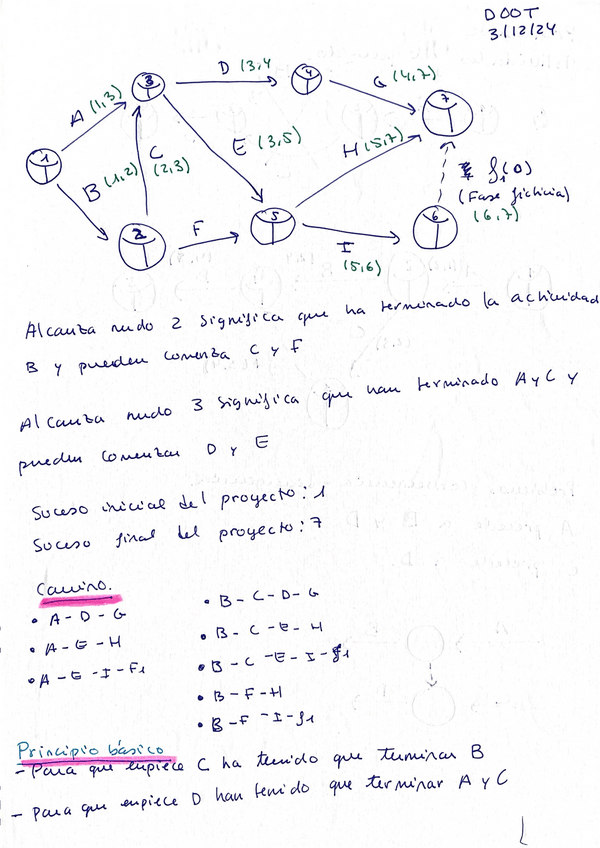 DOOT
3/12/24
D (3,4
G (4,7)
A (1,3)
3
4
7
E (3,5)
H (5,7)
C
(2,3)
1
B (1,2)
f1(0)
(Fase ficticia)
(6,7)
F
2
5
6
I
(5,6)
Alcanza nudo 2 significa que ha terminado la actividad
B y pueden comenza C y F
Alcanza nudo 3 significa que han terminado A y C y
pueden comenzar D y E
Suceso inicial del proyecto: 1
Suceso final del proyecto: 7
Camino.
• A-D-G
• A-E-H
• A-E-I-F1
• B-C-D-G
• B-C-E-H
• B-C-E-I-f1
• B-F-H
• B-F-I-f1
Principio básico
- Para que empiece C ha tenido que terminar B
- Para que empiece D han tenido que terminar A y C